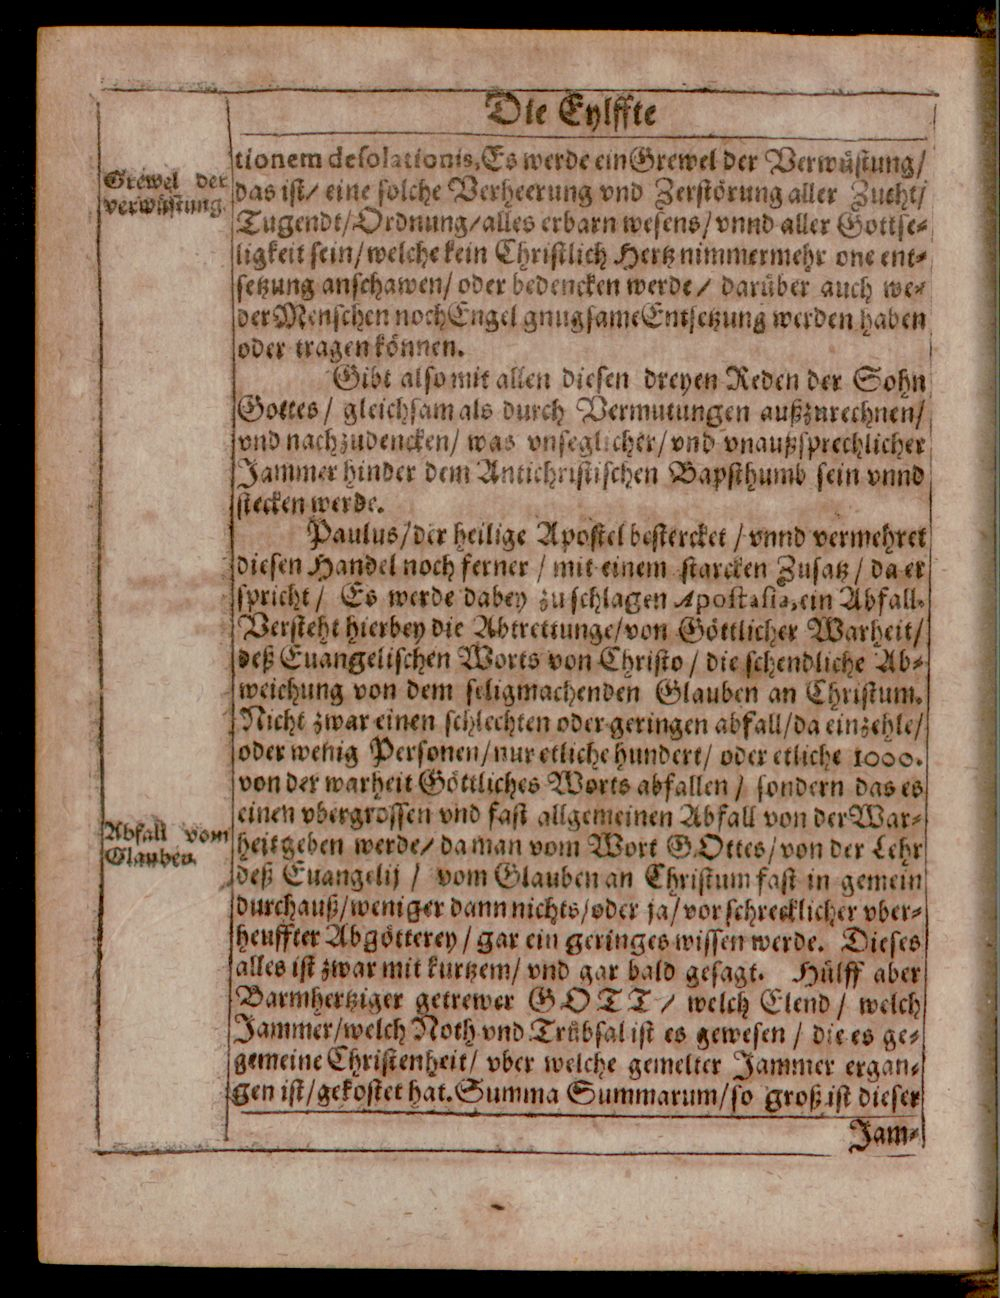 Die Eylffte
tionem desolationis, Es werde ein Grewel der Verwüstung/
Grewel der
verwüstung.
das ist/ eine solche Verheerung vnd Zerstörung aller Zucht/
Tugendt/Ordnung/alles erbarn wesens/vnnd aller Gottse-
ligkeit sein/welche kein Christlich Hertz nimmermehr one ent-
setzung anschawen/ oder bedencken werde/ darüber auch we-
der Menschen noch Engel gnugsame Entsetzung werden haben
oder tragen können.
Gibt also mit allen diesen dreyen Reden der Sohn
Gottes/ gleichsam als durch Vermutungen außzurechnen/
vnd nachzudencken/ was vnseglicher/ vnd vnaußsprechlicher
Jammer hinder dem Antichristischen Bapsthumb sein vnnd
stecken werde.
Paulus/der heilige Apostel bestercket / vnnd vermehret
diesen Handel noch ferner / mit einem starcken Zusatz / da er
spricht / Es werde dabey zu schlagen Apostasia, ein Abfall.
Versteht hierbey die Abtrettunge/von Göttlicher Warheit/
deß Euangelischen Worts von Christo / die schendliche Ab-
weichung von dem seligmachenden Glauben an Christum.
Nicht zwar einen schlechten oder geringen abfall/da einzehle/
oder wenig Personen/nur etliche hundert/ oder etliche 1000.
von der warheit Göttliches Worts abfallen / sondern das es
einen vbergrossen vnd fast allgemeinen Abfall von der War-
Abfall vom
Glauben.
heit geben werde/ da man vom Wort GOttes/von der Lehr
deß Euangelij / vom Glauben an Christum fast in gemein
durchauß/weniger dann nichts/oder ja/vor schrecklicher vber-
heuffter Abgötterey / gar ein geringes wissen werde. Dieses
alles ist zwar mit kurtzem/ vnd gar bald gesagt. Hülff aber
Barmhertziger getrewer GOTT / welch Elend / welch
Jammer/welch Noth vnd Trübsal ist es gewesen / die es ge-
gemeine Christenheit/ vber welche gemelter Jammer ergan-
gen ist/gekostet hat. Summa Summarum/so groß ist dieser
Jam-